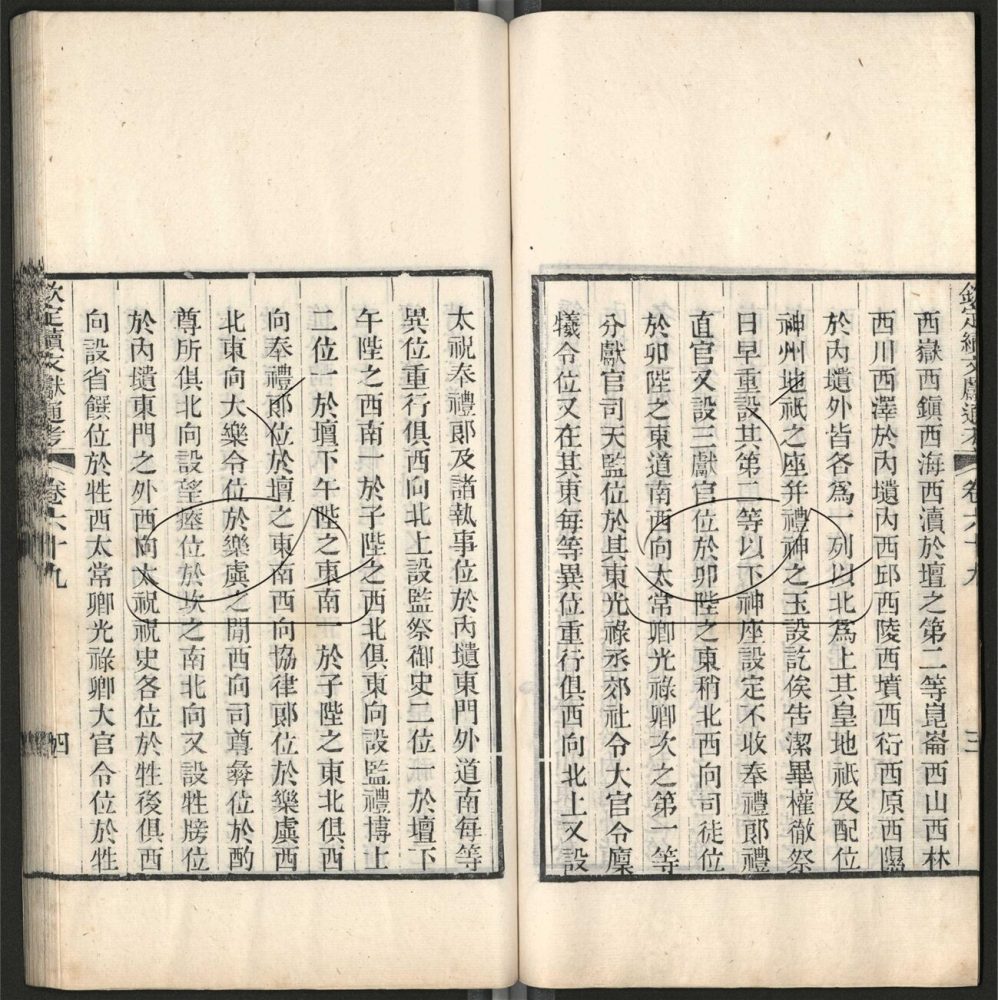 欽定續文獻通考 卷六十九 三
西嶽西鎭西海西瀆於壇之第二等崑崙西山西林
西川西澤於內壝內西邱西陵西墳西衍西原西隰
於內壝外皆各爲一列以北爲上其皇地祇及配位
神州地祇之座幷禮神之玉設訖俟告潔畢權徹祭
日早重設其第二等以下神座設定不收奉禮郞禮
直官又設三獻官位於卯陛之東稍北西向司徒位
於卯陛之東道南西向太常卿光祿卿次之第一等
分獻官司天監位於其東光祿丞郊社令大官令廩
犧令位又在其東每等異位重行俱西向北上又設
太祝奉禮郞及諸執事位於內壝東門外道南每等
異位重行俱西向北上設監祭御史二位一於壇下
午陛之西南一於子陛之西北俱東向設監禮博士
二位一於壇下午陛之東南一於子陛之東北俱西
向奉禮郞位於壇之東南西向協律郞位於樂虡西
北東向大樂令位於樂虡之間西向司尊彝位於酌
尊所俱北向設望瘞位於坎之南北向又設牲牓位
於內壝東門之外西向太祝祝史各位於牲後俱西
向設省饌位於牲西太常卿光祿卿大官令位於牲
欽定續文獻通考 卷六十九 四